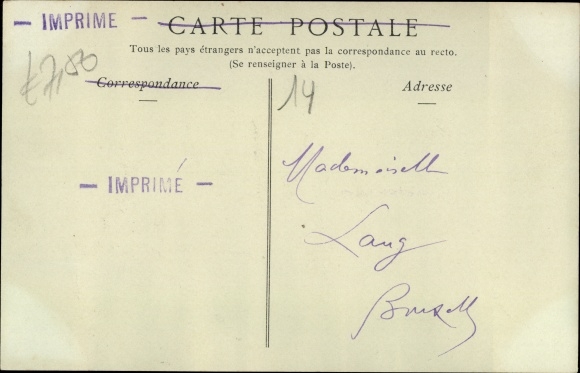 — IMPRIME —
CARTE POSTALE
Tous les pays étrangers n'acceptent pas la correspondance au recto.
(Se renseigner à la Poste).
£7,50
Correspondance
14
Adresse
— IMPRIMÉ —
Mademoiselle
Lang